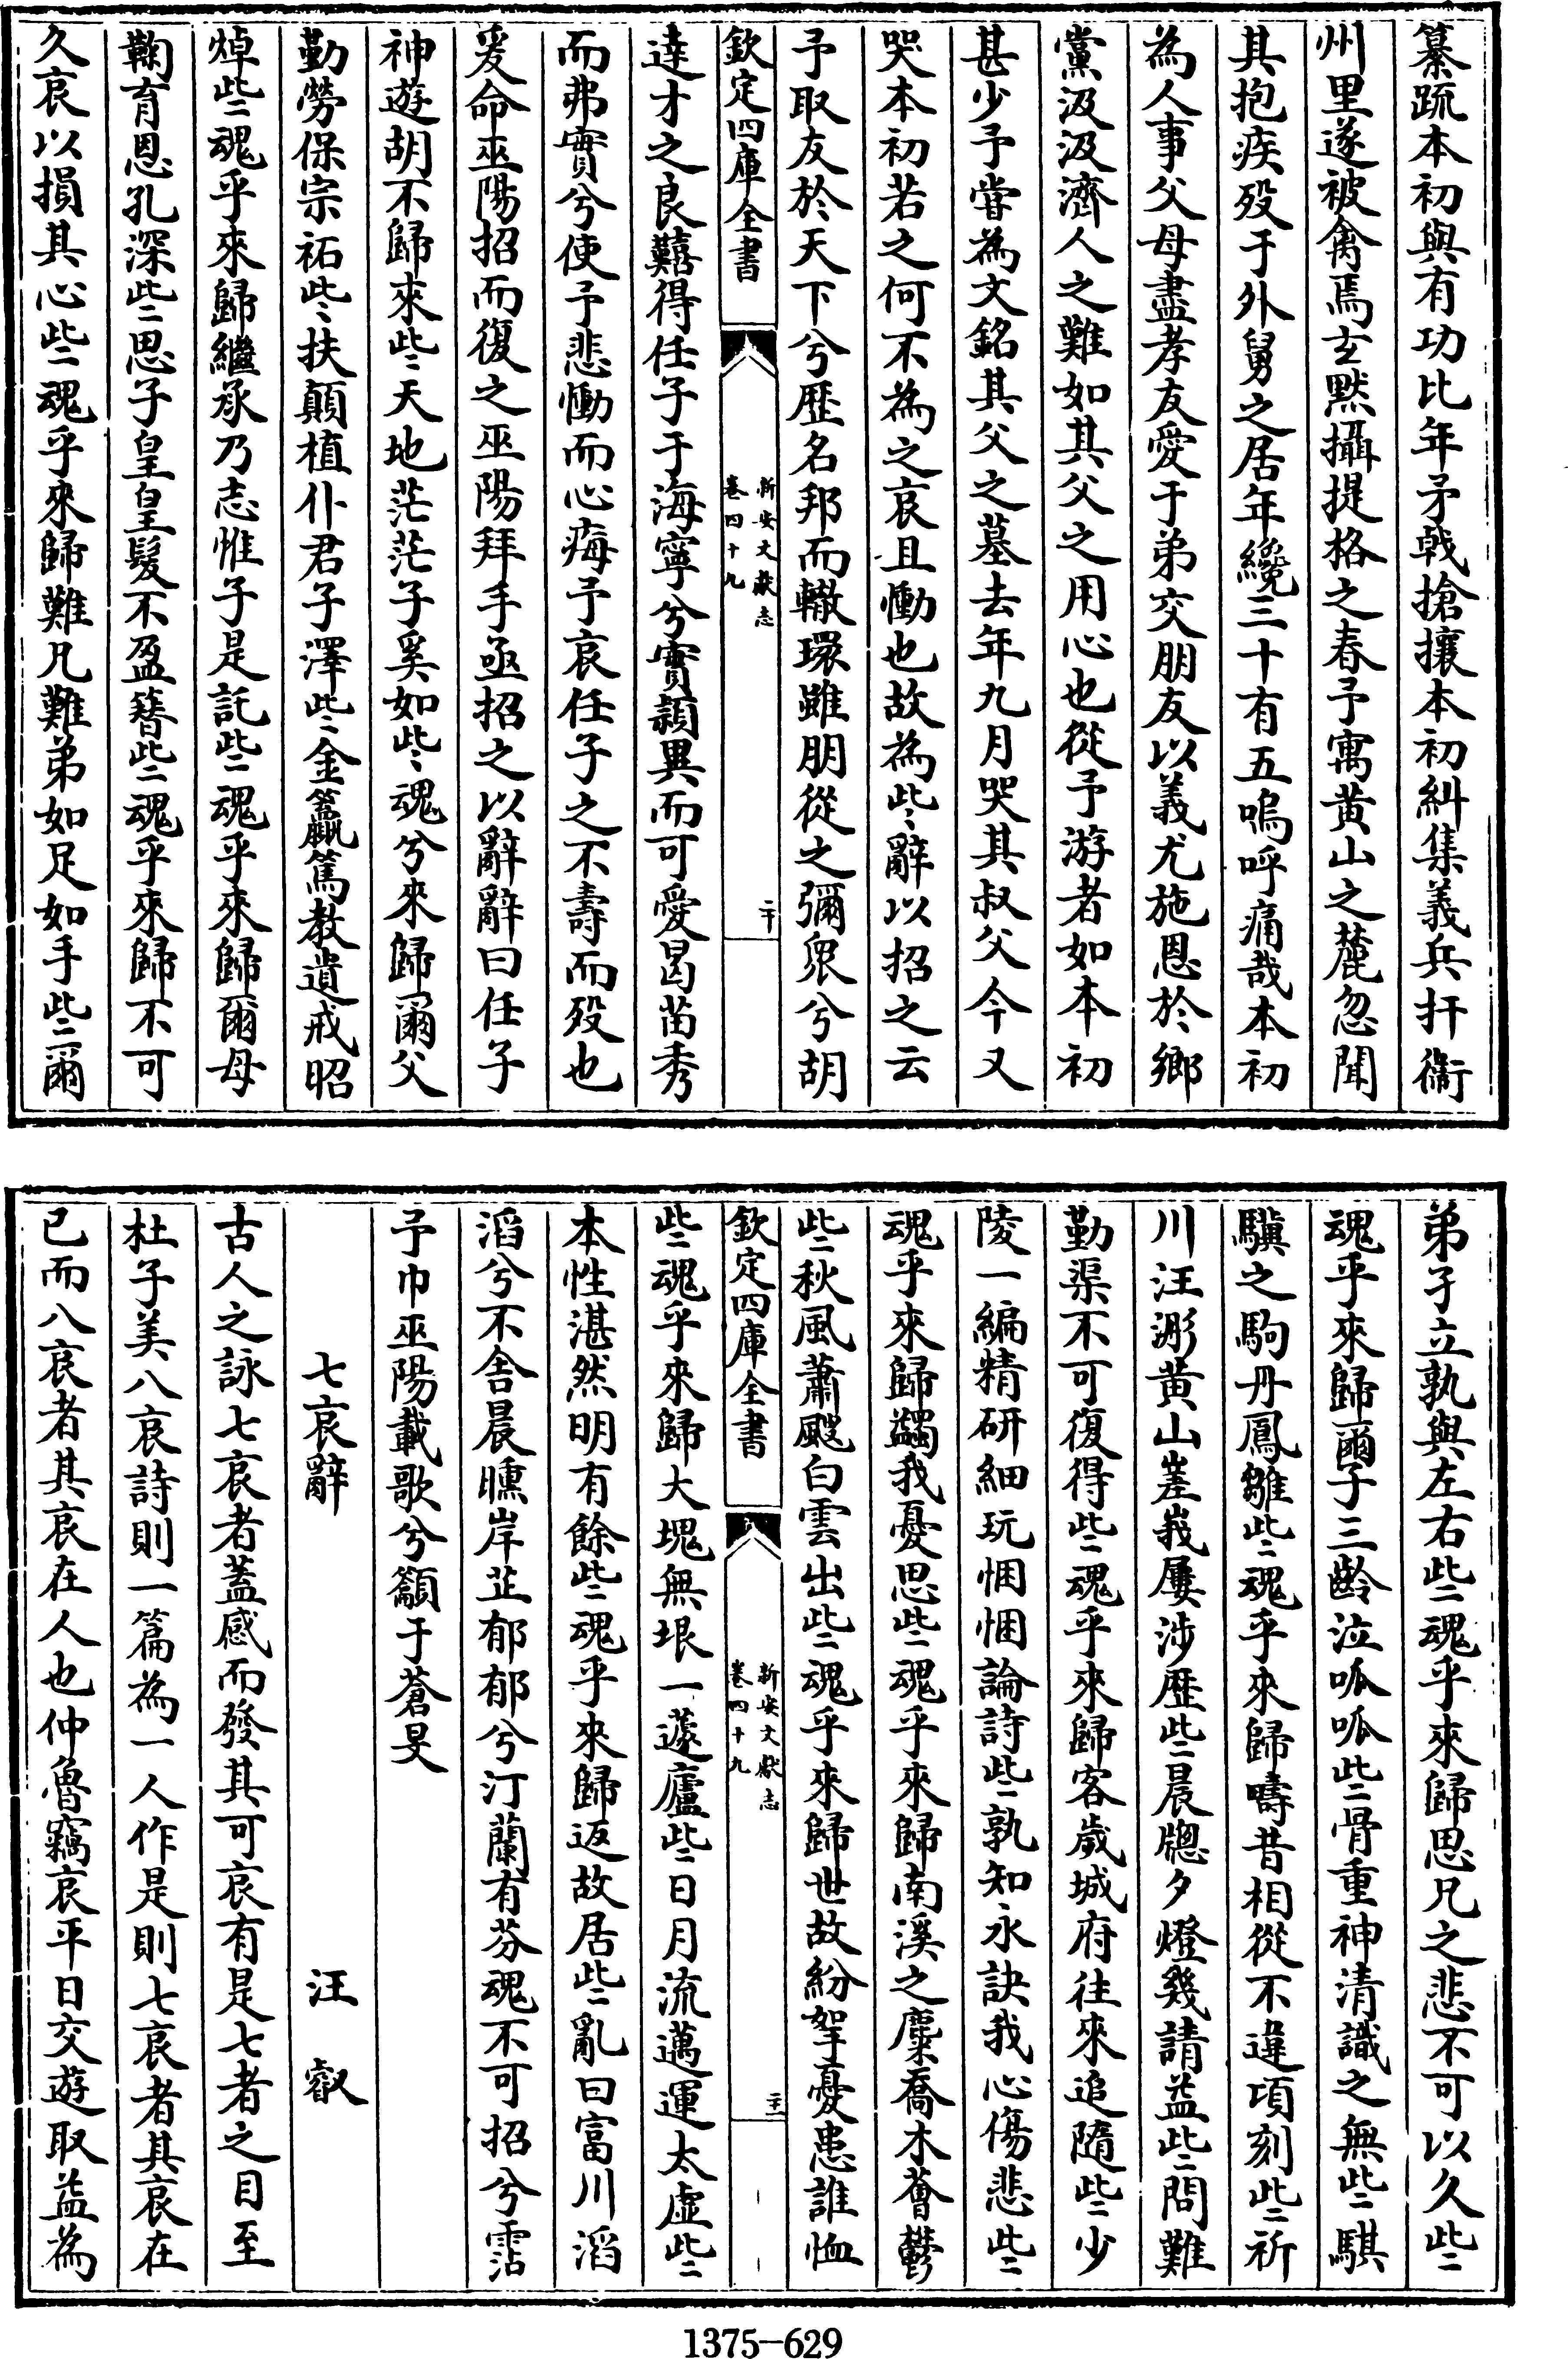 纂疏本初與有功比年矛戟搶攘本初糾集義兵扞衞
州里遂被禽焉玄黙攝提格之春予寓黄山之麓忽聞
其抱疾殁于外舅之居年纔三十有五嗚呼痛哉本初
為人事父母盡孝友愛于弟交朋友以義尤施恩於鄉
黨汲汲濟人之難如其父之用心也從予游者如本初
甚少予嘗為文銘其父之墓去年九月哭其叔父今又
哭本初若之何不為之哀且慟也故為些辭以招之云
予取友於天下兮歴名邦而轍環雖朋從之彌衆兮胡
欽定四庫全書
新安文獻志
卷四十九
二十
達才之良囏得任子于海寧兮實穎異而可愛曷苗秀
而弗實兮使予悲慟而心痗予哀任子之不壽而殁也
爰命巫陽招而復之巫陽拜手亟招之以辭辭曰任子
神遊胡不歸來些天地茫茫子奚如些魂兮來歸爾父
勤勞保宗祏些扶顛植仆君子澤些金籯篤教遺戒昭
焯些魂乎來歸繼承乃志惟子是託些魂乎來歸爾母
鞠育恩孔深些思子皇皇髮不盈簪些魂乎來歸不可
久哀以損其心些魂乎來歸難凡難弟如足如手些爾
弟孑立孰與左右些魂乎來歸思凡之悲不可以久些
魂乎來歸爾子三齡泣呱呱些骨重神清識之無些騏
驥之駒丹鳳雛些魂乎來歸疇昔相從不違頃刻些祈
川汪渺黄山崔峩屢涉歴些晨牕夕燈幾請益些問難
勤渠不可復得些魂乎來歸客嵗城府往來追隨些少
陵一編精研細玩悃悃論詩些孰知永訣我心傷悲些
魂乎來歸蠲我憂思些魂乎來歸南溪之麋喬木薈鬱
些秋風蕭颼白雲出些魂乎來歸世故紛挐憂患誰恤
欽定四庫全書
新安文獻志
卷四十九
二十一
些魂乎來歸大塊無垠一蘧廬些日月流邁運太虚些
本性湛然明有餘些魂乎來歸返故居些亂曰富川滔
滔兮不舍晨曛岸芷郁郁兮汀蘭有芬魂不可招兮霑
予巾巫陽載歌兮籲于蒼旻
七哀辭　汪叡
古人之詠七哀者蓋感而發其可哀有是七者之目至
杜子美八哀詩則一篇為一人作是則七哀者其哀在
已而八哀者其哀在人也仲魯竊哀平日交遊取益為
1375-629